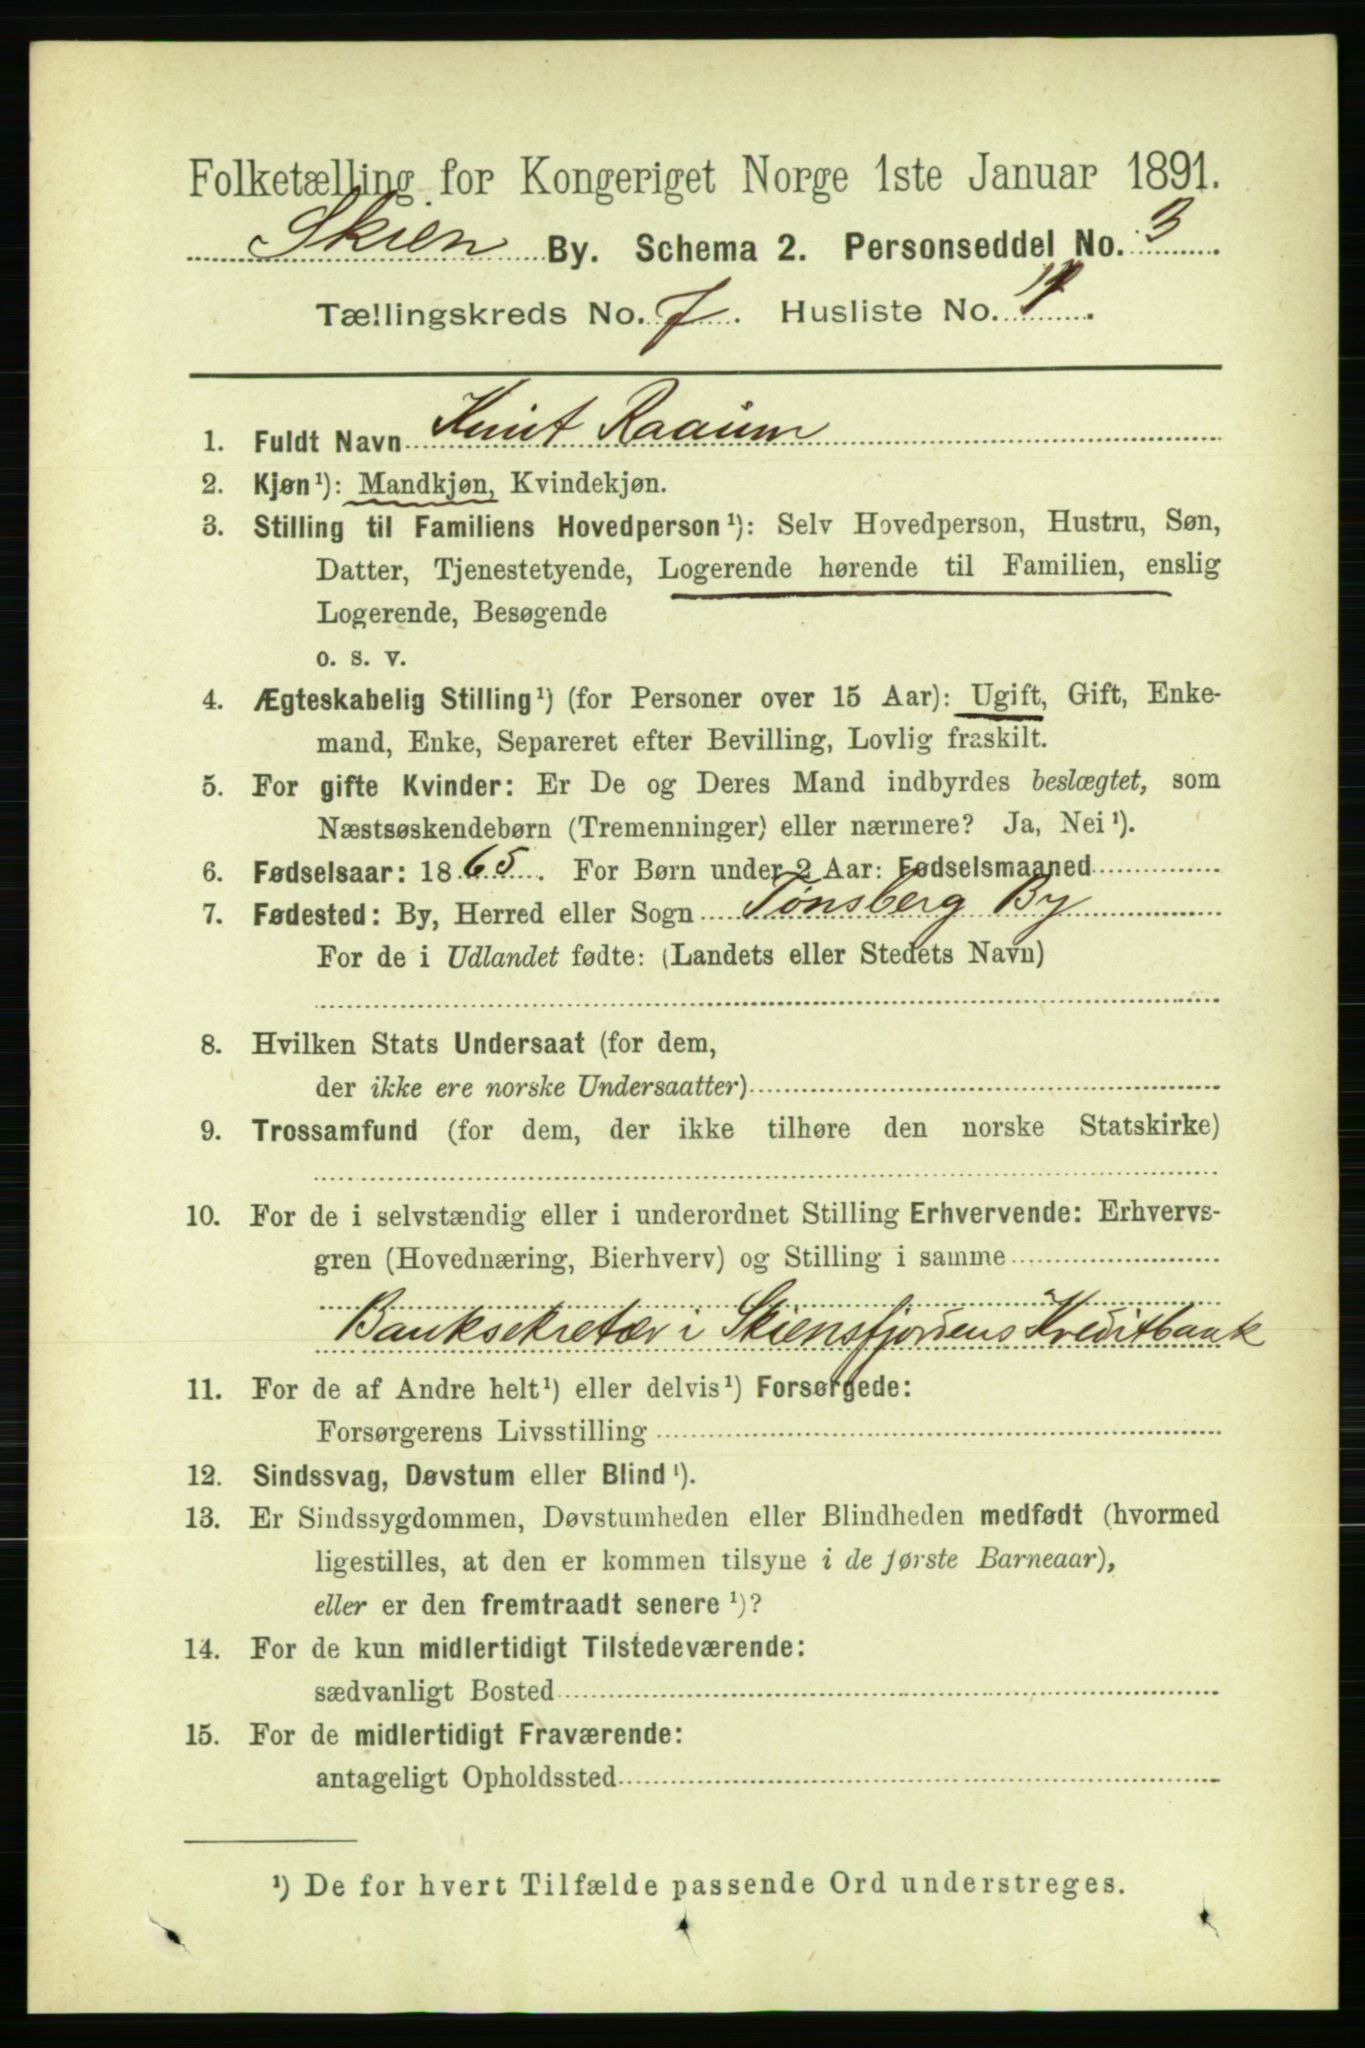 Folketælling for Kongeriget Norge 1ste Januar 1891.
Skien By. Schema 2. Personseddel No. 3
Tællingskreds No. 7. Husliste No. 14.
1. Fuldt Navn Knut Raaum
2. Kjøn¹): Mandkjøn, Kvindekjøn.
3. Stilling til Familiens Hovedperson¹): Selv Hovedperson, Hustru, Søn,
Datter, Tjenestetyende, Logerende hørende til Familien, enslig
Logerende, Besøgende
o. s. v.
4. Ægteskabelig Stilling¹) (for Personer over 15 Aar): Ugift, Gift, Enke-
mand, Enke, Separeret efter Bevilling, Lovlig fraskilt.
5. For gifte Kvinder: Er De og Deres Mand indbyrdes beslægtet, som
Næstsøskendebørn (Tremenninger) eller nærmere? Ja, Nei¹).
6. Fødselsaar: 1865. For Børn under 2 Aar: Fødselsmaaned
7. Fødested: By, Herred eller Sogn Tønsberg By
For de i Udlandet fødte: (Landets eller Stedets Navn)
8. Hvilken Stats Undersaat (for dem,
der ikke ere norske Undersaatter)
9. Trossamfund (for dem, der ikke tilhøre den norske Statskirke)
10. For de i selvstændig eller i underordnet Stilling Erhvervende: Erhvervs-
gren (Hovednæring, Bierhverv) og Stilling i samme
Banksekretær i Skiensfjordens Kreditbank
11. For de af Andre helt¹) eller delvis¹) Forsørgede:
Forsørgerens Livsstilling
12. Sindssvag, Døvstum eller Blind¹).
13. Er Sindssygdommen, Døvstumheden eller Blindheden medfødt (hvormed
ligestilles, at den er kommen tilsyne i de første Barneaar),
eller er den fremtraadt senere¹)?
14. For de kun midlertidigt Tilstedeværende:
sædvanligt Bosted
15. For de midlertidigt Fraværende:
antageligt Opholdssted
¹) De for hvert Tilfælde passende Ord understreges.